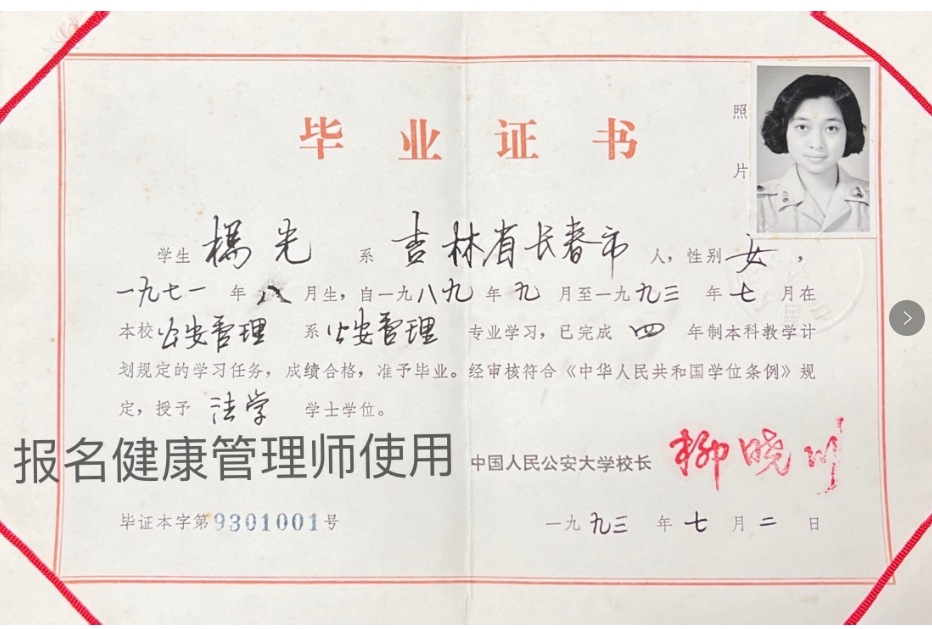 毕业证书
照片
学生 杨光 系 吉林省长春市 人，性别 女，
一九七一 年 八 月生，自一九八九 年 九 月至一九九三 年 七 月在
本校 公安管理 系 公安管理 专业学习，已完成 四 年制本科教学计
划规定的学习任务，成绩合格，准予毕业。经审核符合《中华人民共和国学位条例》规
定，授予 法学 学士学位。
报名健康管理师使用
中国人民公安大学校长 柳晓川
毕证本字第9301001号
一九九三 年 七 月 二 日